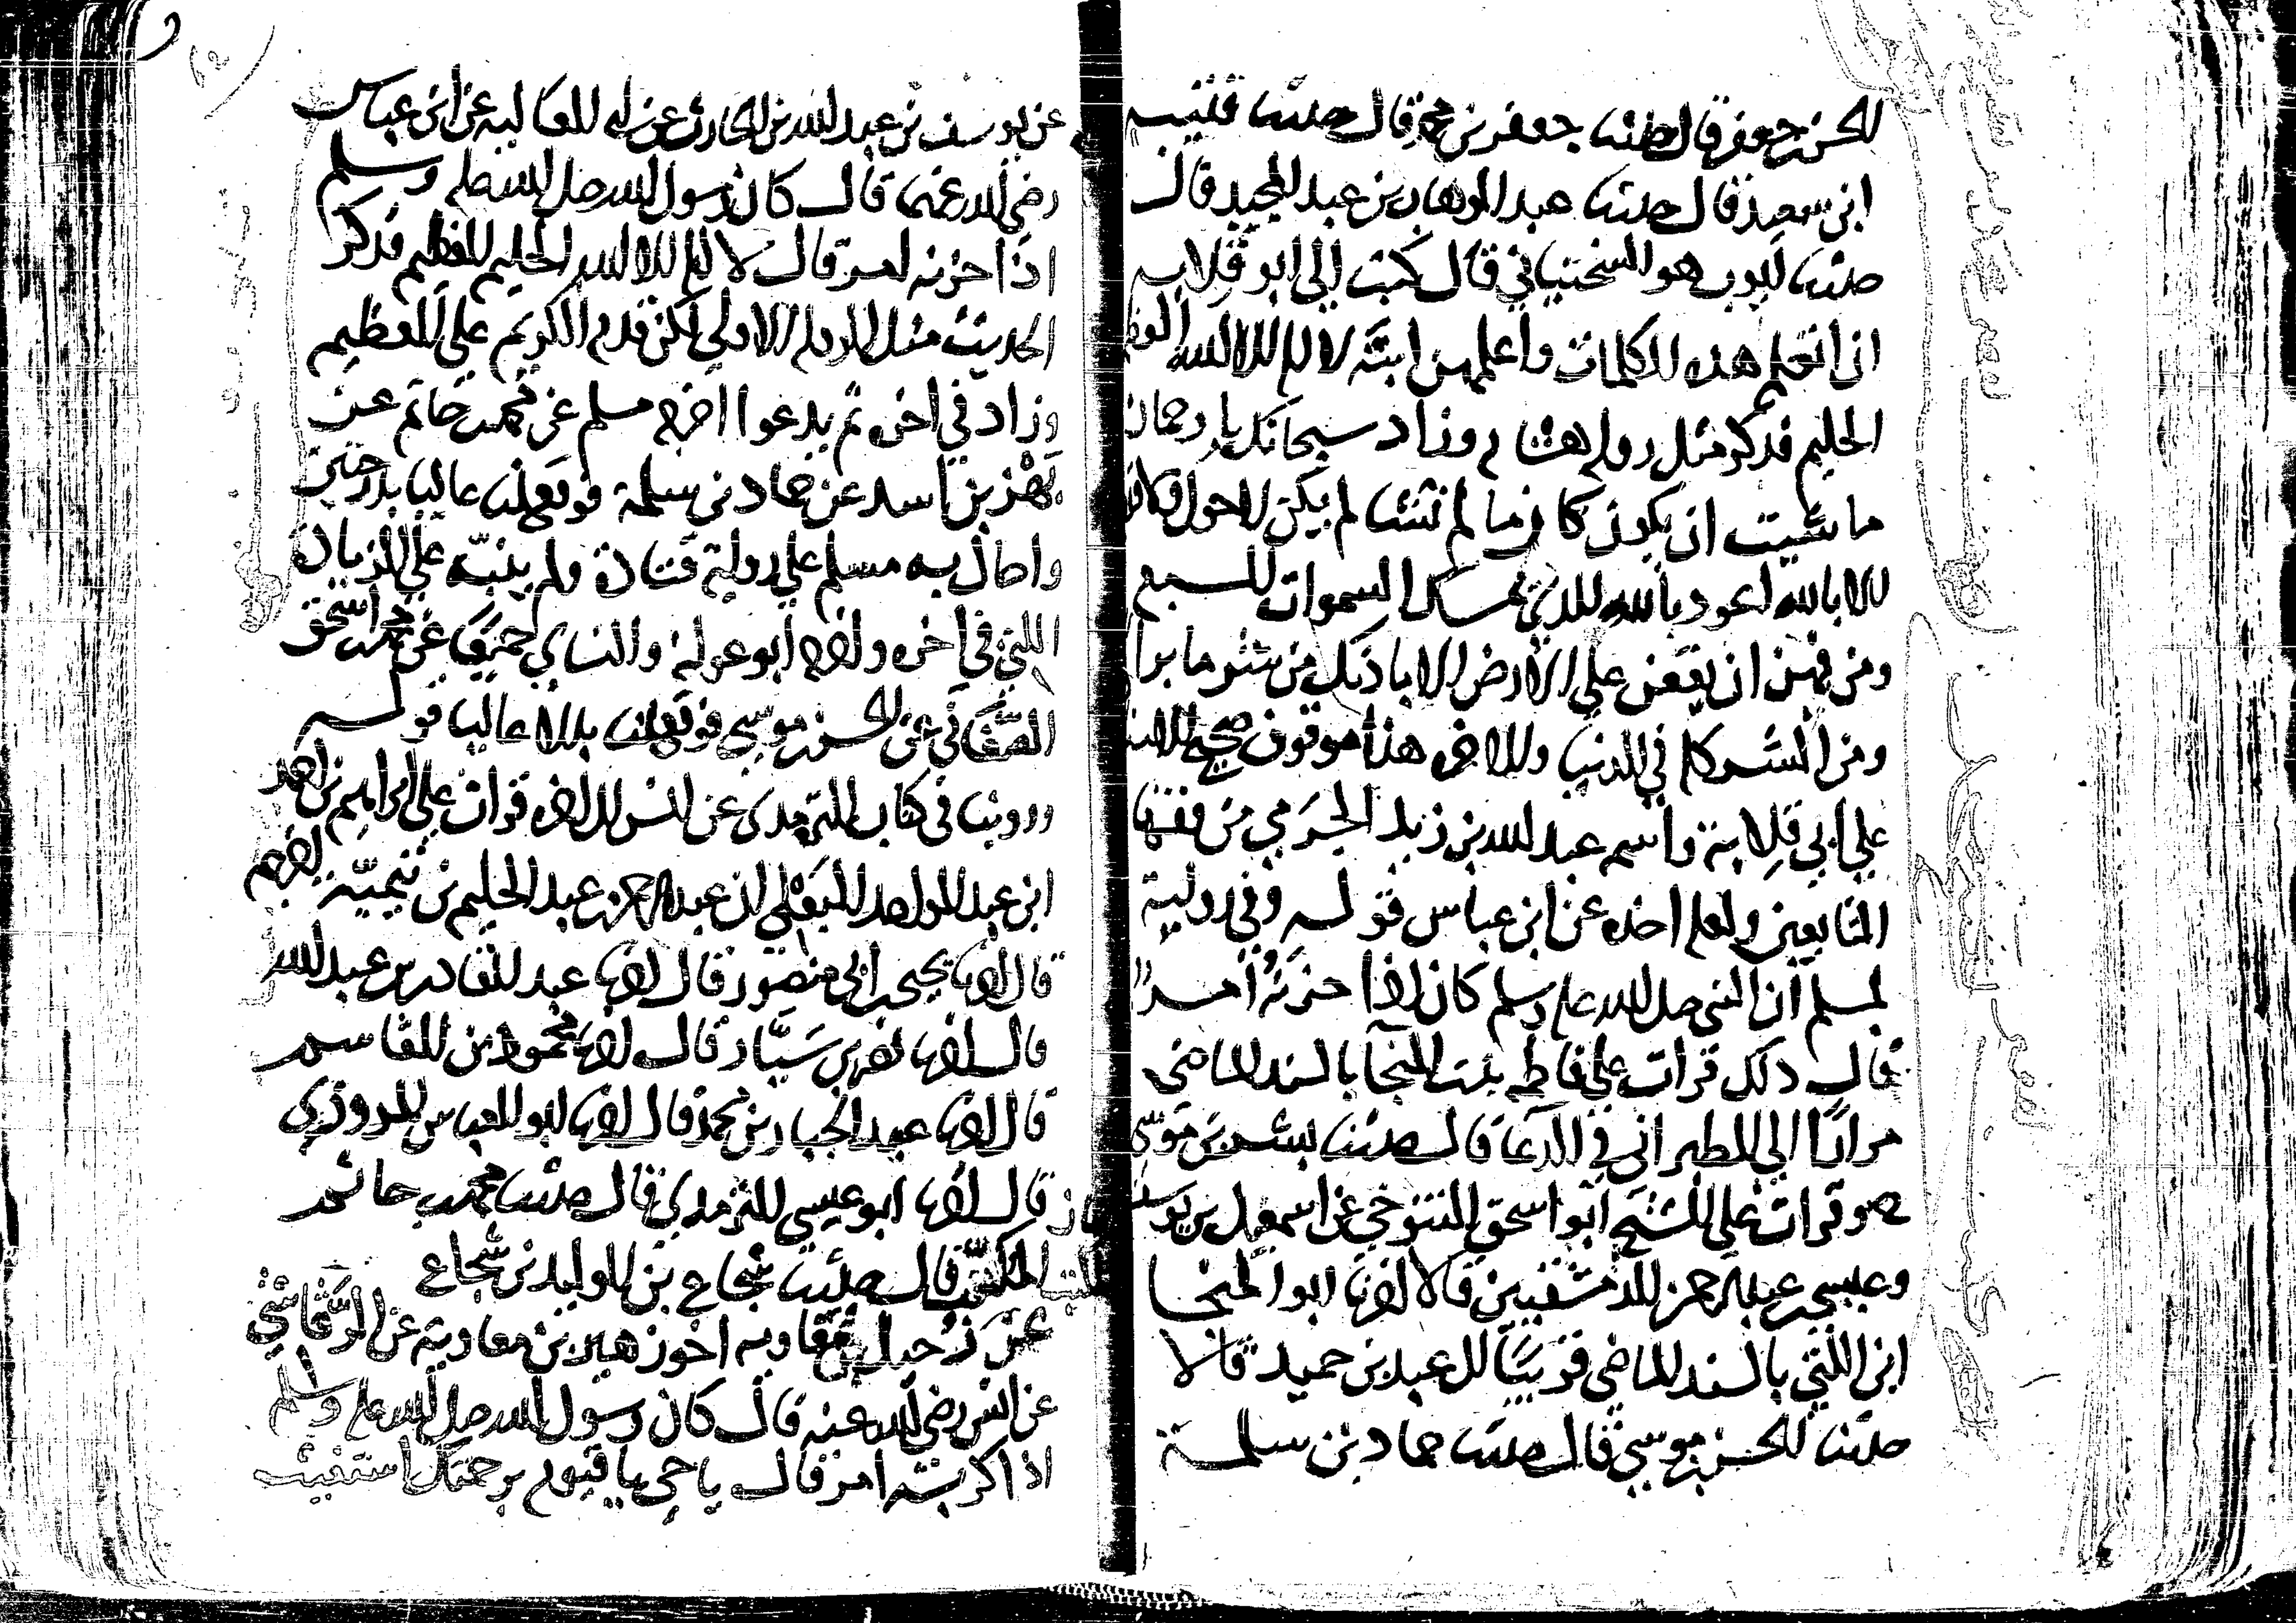 الحسن بن جعفر قال حدثنا جعفر بن محمد قال حدثنا قتيبة
ابن سعيد قال حدثنا عبد الوهاب بن عبد المجيد قال
حدثنا ايوب هو السختياني قال كتب الي ابو قلابه
ان اتعلم هذه الكلمات واعلمهن ابنه لا اله الا الله العظيم
الحليم فذكر مثل رواية هشام وزاد سبحانك يا رحمان
ما شيت ان يكون كان وما لم تشا لم يكن لا حول ولا قوة
الا بالله اعوذ بالله الذي يمسك السموات السبع
ومن فيهن ان يقعن علي الارض الا باذنك من شر ما برا
ومن الشر كله في الدنيا والاخرة هذا موقوف صحيح الاسناد
علي ابي قلابة واسمه عبد الله بن زيد الجرمي من فقهاء
التابعين ولعله اخذه عن ابن عباس قوله وفي رواية
لمسلم ان النبي صلى الله عليه وسلم كان اذا حزبه امر
قال ذلك قرات علي فاطمة بنت المنجا بالسند الماضي
مرارا الي الطبراني في الدعا قال حدثنا بشر بن موسى
ح وقرات علي الشيخ ابو اسحق التنوخي عن اسمعيل بن يوسف
وعيسى بن عبد الرحمن الدمشقيين قالا اخبرنا ابو المنجا
ابن اللتي بالسند الماضي قريبا الى عبد بن حميد قالا
حدثنا الحسن بن موسي قال حدثنا حماد بن سلمة
عن يوسف بن عبد الله بن الحارث عن ابي العاليه عن ابن عباس
رضي الله عنهما قال كان رسول الله صلى الله عليه وسلم
اذا حزبه امر قال لا اله الا الله الحليم العظيم فذكر
الحديث مثل الرواية الاولي لكن قدم الكريم علي العظيم
وزاد في اخره ثم يدعوا اخرجه مسلم عن محمد بن حاتم عن
بهز بن اسد عن حماد بن سلمة فوقع لنا عاليا بدرجتين
واحال به مسلم علي رواية قتادة ولم ينبه علي الزيادة
التي في اخره واخرجه ابو عوانة والنساي جميعا عن محمد بن اسحق
الصغاني عن الحسن بن موسي فوقع لنا بدلا عاليا قوله
وروينا في كتاب الترمذي عن انس الى اخره قرات علي ابراهيم بن احمد
ابن عبد الواحد البعلي ان عبد الرحمن بن عبد الحليم بن تيمية اخبرهم
قال اخبرنا يحيى بن ابي منصور قال اخبرنا عبد القادر بن عبد الله
قال اخبرنا نصر بن سيار قال اخبرنا محمود بن القاسم
قال اخبرنا عبد الجبار بن محمد قال اخبرنا ابو العباس المروزي
قال اخبرنا ابو عيسى الترمذي قال حدثنا محمد بن حاتم
المكتب قال حدثنا شجاع بن الوليد بن شجاع
عن رحيل بن معاوية اخو زهير بن معاوية عن الرقاشي
عن انس رضي الله عنه قال كان رسول الله صلى الله عليه وسلم
اذا كربه امر قال يا حي يا قيوم برحمتك استغيث